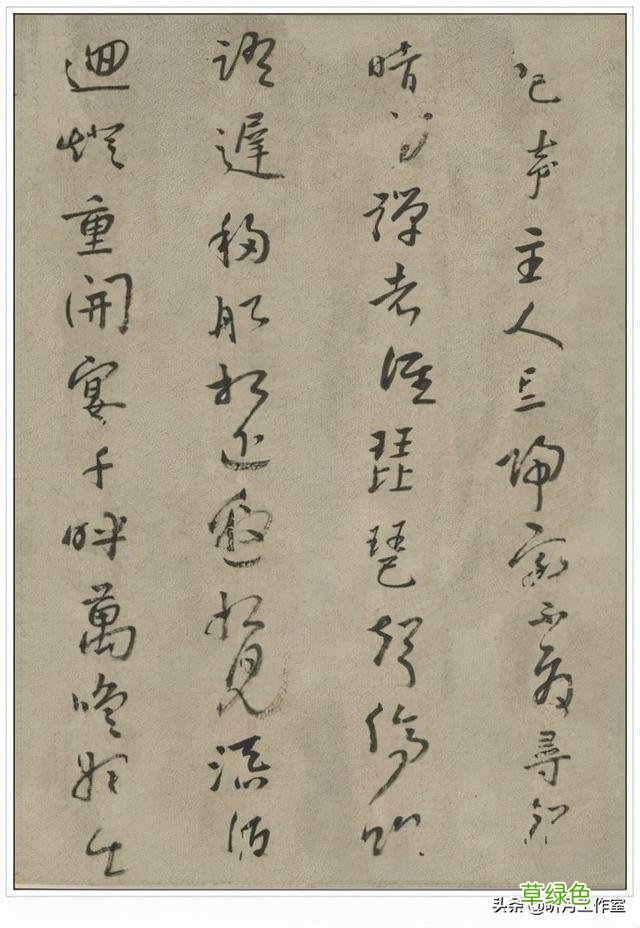 琶声主人忘歸客不發尋聲
暗問彈者誰琵琶聲停欲
語遲移船相近邀相見添酒
迴燈重開宴千呼萬喚始出
草绿色
头条 @月工作室